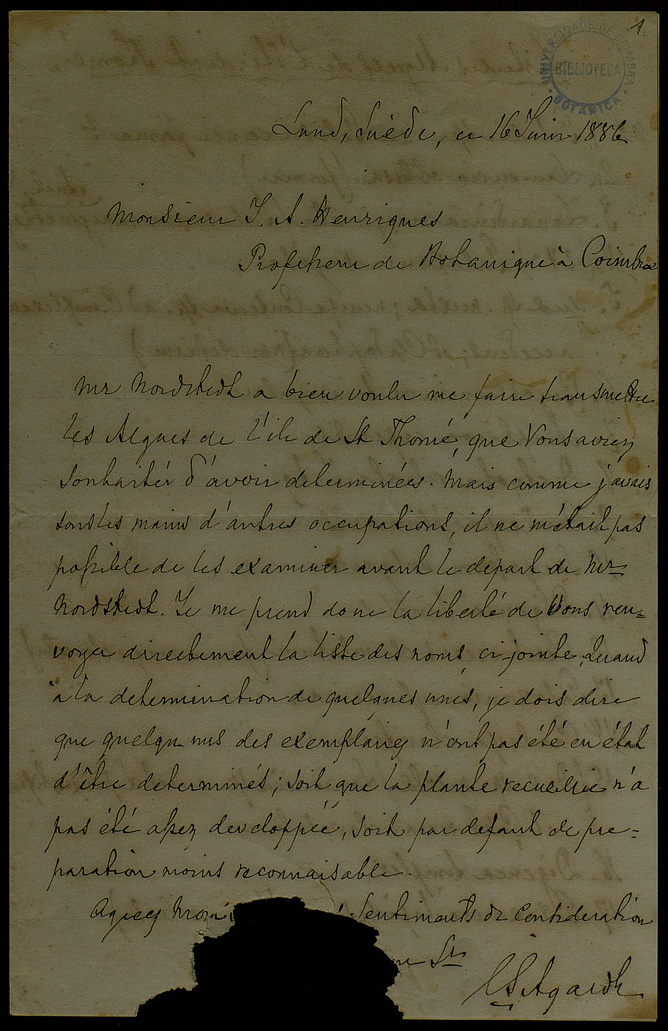 1.
UNIVERSIDADE DE COIMBRA
BIBLIOTECA
BOTANICA
Lund, Suède, ce 16 Juin 1886
Monsieur J. A. Henriques
Professeur de Botanique à Coimbra
Mr Nordstedt a bien voulu me faire transmettre
les Algues de l'ile de St Thomé, que Vous aviez
souhaitér d'avoir determinées. Mais comme j'avais
sous les mains d'autres occupations, il ne m'était pas
possible de les examiner avant le départ de Mr
Nordstedt. Je me prend donc la liberté de Vous ren=
voyer directement la liste des noms, ci jointe. Quand
à la determination de quelques unes, je dois dire
que quelqu uns des exemplaires n'ont pas été en état
d'être determinés; soit que la plante recueillie n'a
pas été assez developpée, soit par defaut de pre=
paration moins reconnaisable.
Agreez sentiments de consideration
J G Agardh